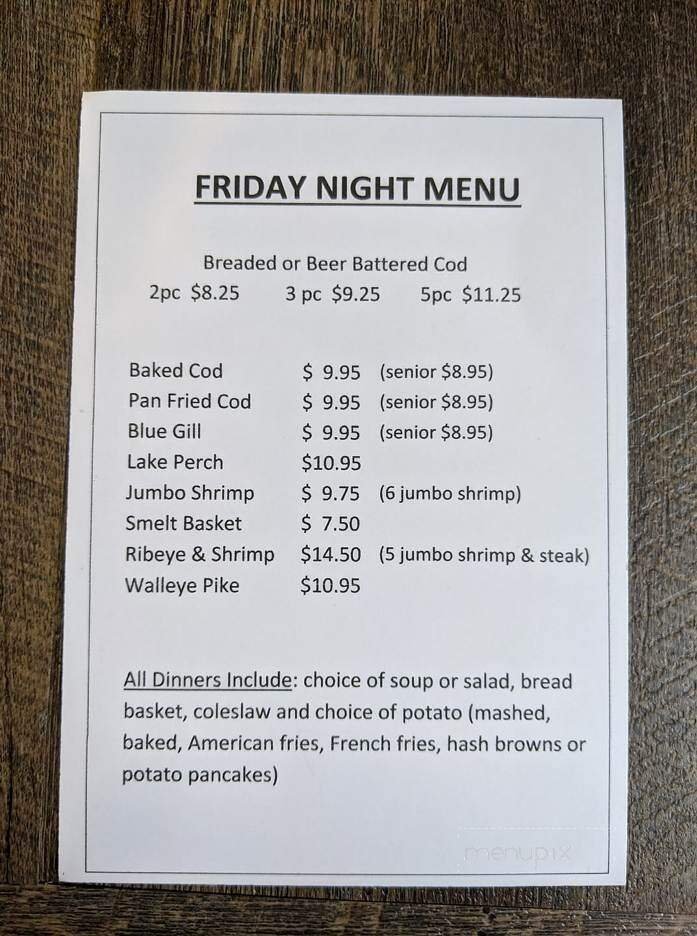 FRIDAY NIGHT MENU
Breaded or Beer Battered Cod
2pc $8.25 3 pc $9.25 5pc $11.25
Baked Cod $ 9.95 (senior $8.95)
Pan Fried Cod $ 9.95 (senior $8.95)
Blue Gill $ 9.95 (senior $8.95)
Lake Perch $10.95
Jumbo Shrimp $ 9.75 (6 jumbo shrimp)
Smelt Basket $ 7.50
Ribeye & Shrimp $14.50 (5 jumbo shrimp & steak)
Walleye Pike $10.95
All Dinners Include: choice of soup or salad, bread
basket, coleslaw and choice of potato (mashed,
baked, American fries, French fries, hash browns or
potato pancakes)
menupix